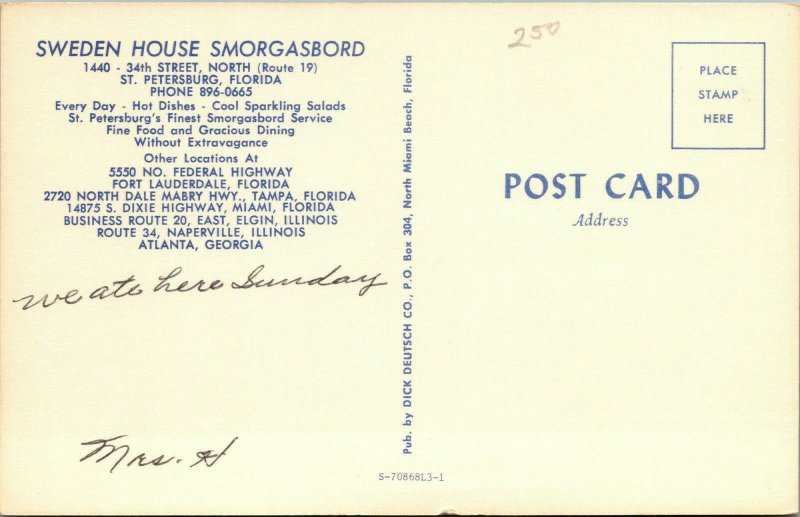 SWEDEN HOUSE SMORGASBORD
1440 - 34th STREET, NORTH (Route 19)
ST. PETERSBURG, FLORIDA
PHONE 896-0665
Every Day - Hot Dishes - Cool Sparkling Salads
St. Petersburg's Finest Smorgasbord Service
Fine Food and Gracious Dining
Without Extravagance
Other Locations At
5550 NO. FEDERAL HIGHWAY
FORT LAUDERDALE, FLORIDA
2720 NORTH DALE MABRY HWY., TAMPA, FLORIDA
14875 S. DIXIE HIGHWAY, MIAMI, FLORIDA
BUSINESS ROUTE 20, EAST, ELGIN, ILLINOIS
ROUTE 34, NAPERVILLE, ILLINOIS
ATLANTA, GEORGIA
we ate here Sunday
Mrs. H
Pub. by DICK DEUTSCH CO., P.O. Box 304, North Miami Beach, Florida
S-70868L3-1
250
PLACE
STAMP
HERE
POST CARD
Address